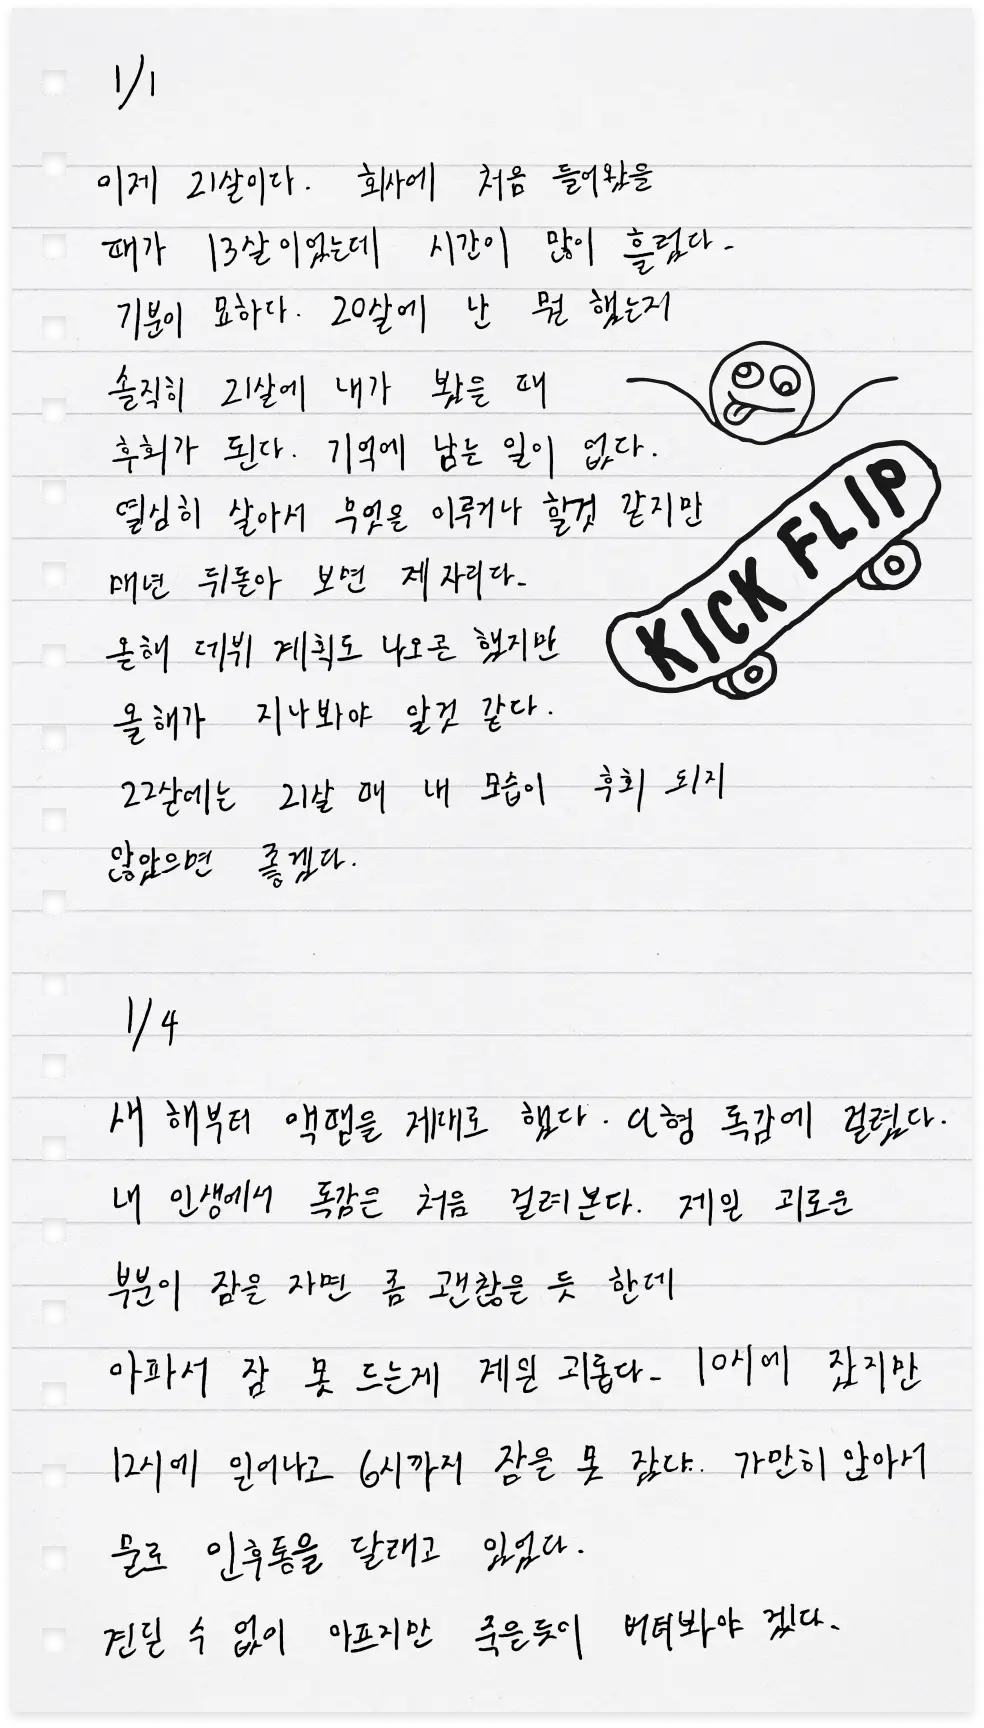 1/1
이제 21살이다. 회사에 처음 들어왔을
때가 13살이었는데 시간이 많이 흘렀다.
기분이 묘하다. 20살에 난 뭘 했는지
솔직히 21살에 내가 봤을 때
후회가 된다. 기억에 남는 일이 없다.
열심히 살아서 무엇을 이루거나 할것 같지만
매년 뒤돌아 보면 제자리다.
KICK FLIP
올해 데뷔 계획도 나오곤 했지만
올해가 지나봐야 알것 같다.
22살에는 21살 때 내 모습이 후회 되지
않았으면 좋겠다.
1/4
새 해부터 액땜을 제대로 했다. a형 독감에 걸렸다.
내 인생에서 독감은 처음 걸려본다. 제일 괴로운
부분이 잠을 자면 좀 괜찮을 듯 한데
아파서 잠 못 드는게 제일 괴롭다. 10시에 잤지만
12시에 일어나고 6시까지 잠을 못 잤다.. 가만히 앉아서
물로 인후통을 달래고 있었다.
견딜 수 없이 아프지만 죽은듯이 버텨봐야 겠다.